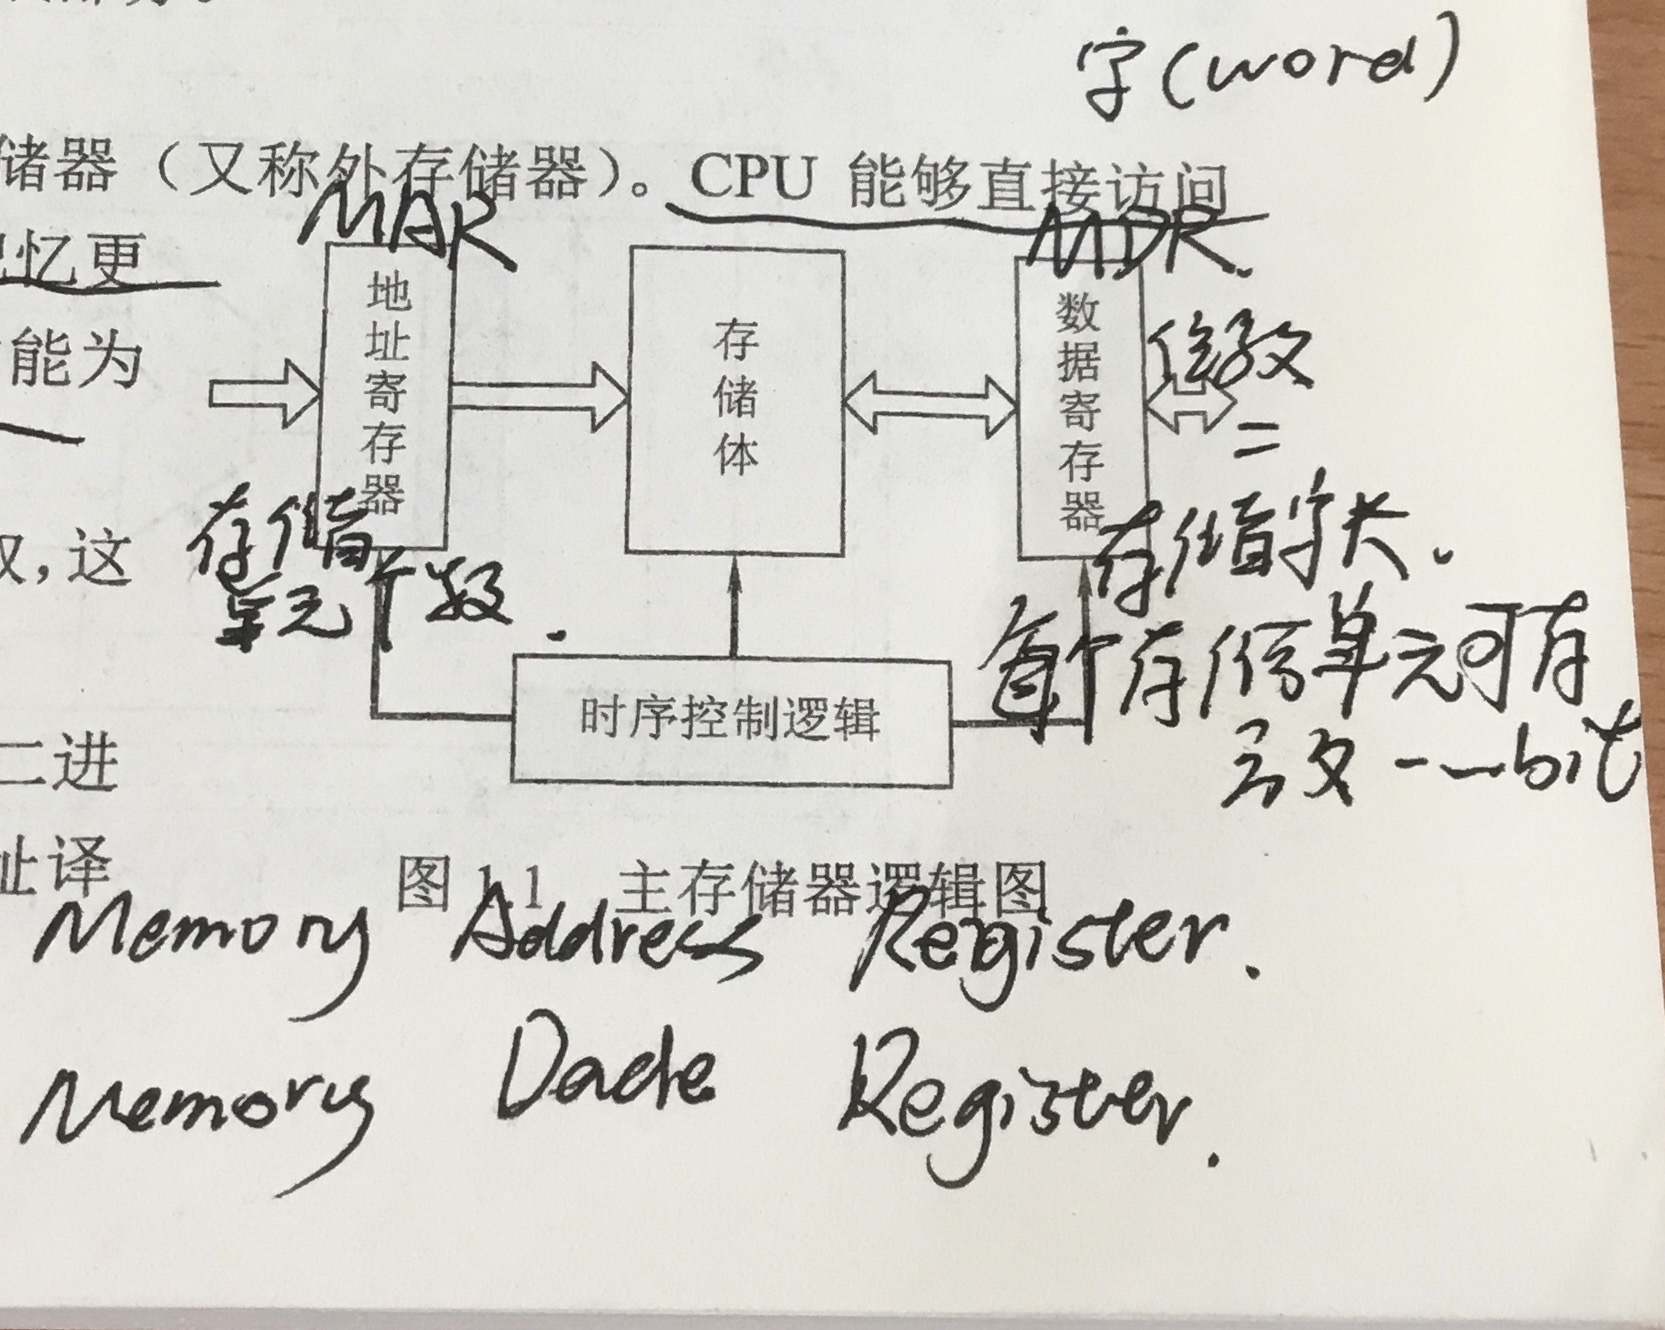 字(word)
储器（又称外存储器）。CPU 能够直接访问
MAR
MDR.
忆更
地址寄存器
存储体
数据寄存器
位数
能为
=
存储字长.
存储
单元个数.
，这
每个存储单元可有
时序控制逻辑
bit
二进
图 1.1 主存储器逻辑图
址译
Memory Address Register.
Memory Date Register.